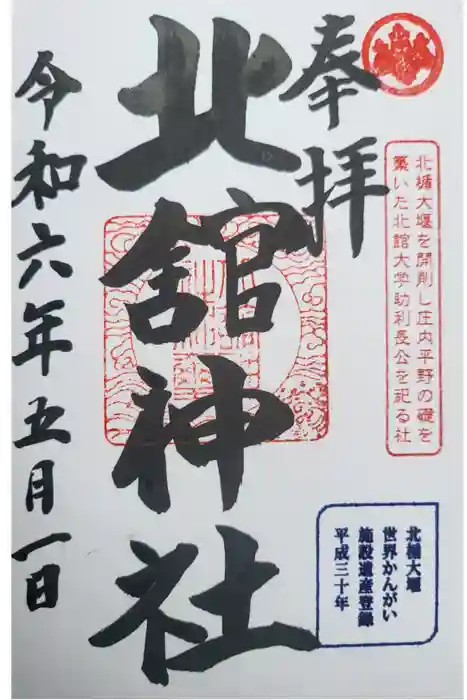 奉拝
北楯大堰を開削し庄内平野の礎を
築いた北館大学助利長公を祀る社
北舘神社
令和六年五月一日
北楯大堰
世界かんがい
施設遺産登録
平成三十年